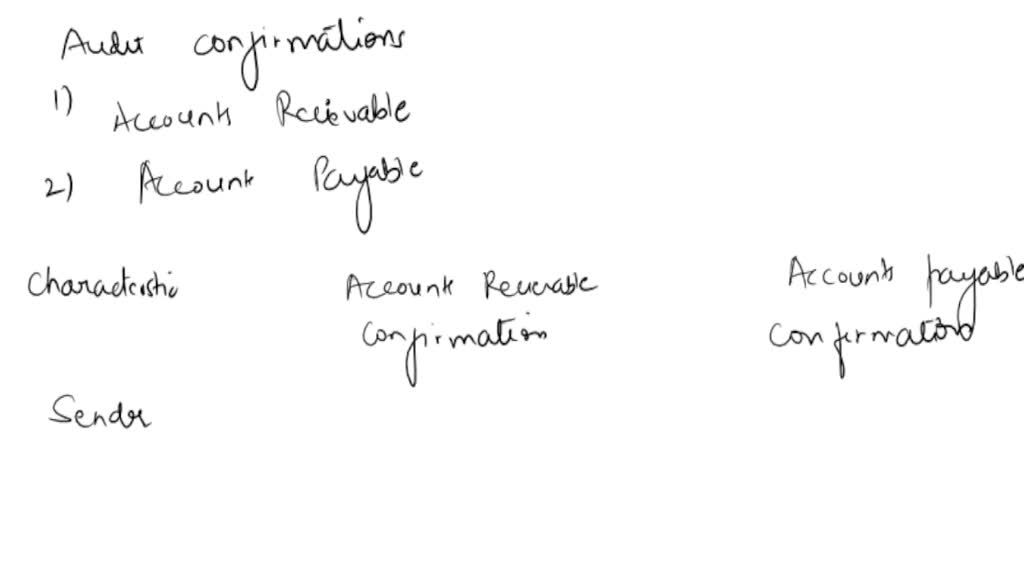 Audit confirmations
1) Accounts Receivable
2) Account Payable
Characteristic Account Receivable Accounts payable
confirmation confirmations
Sender